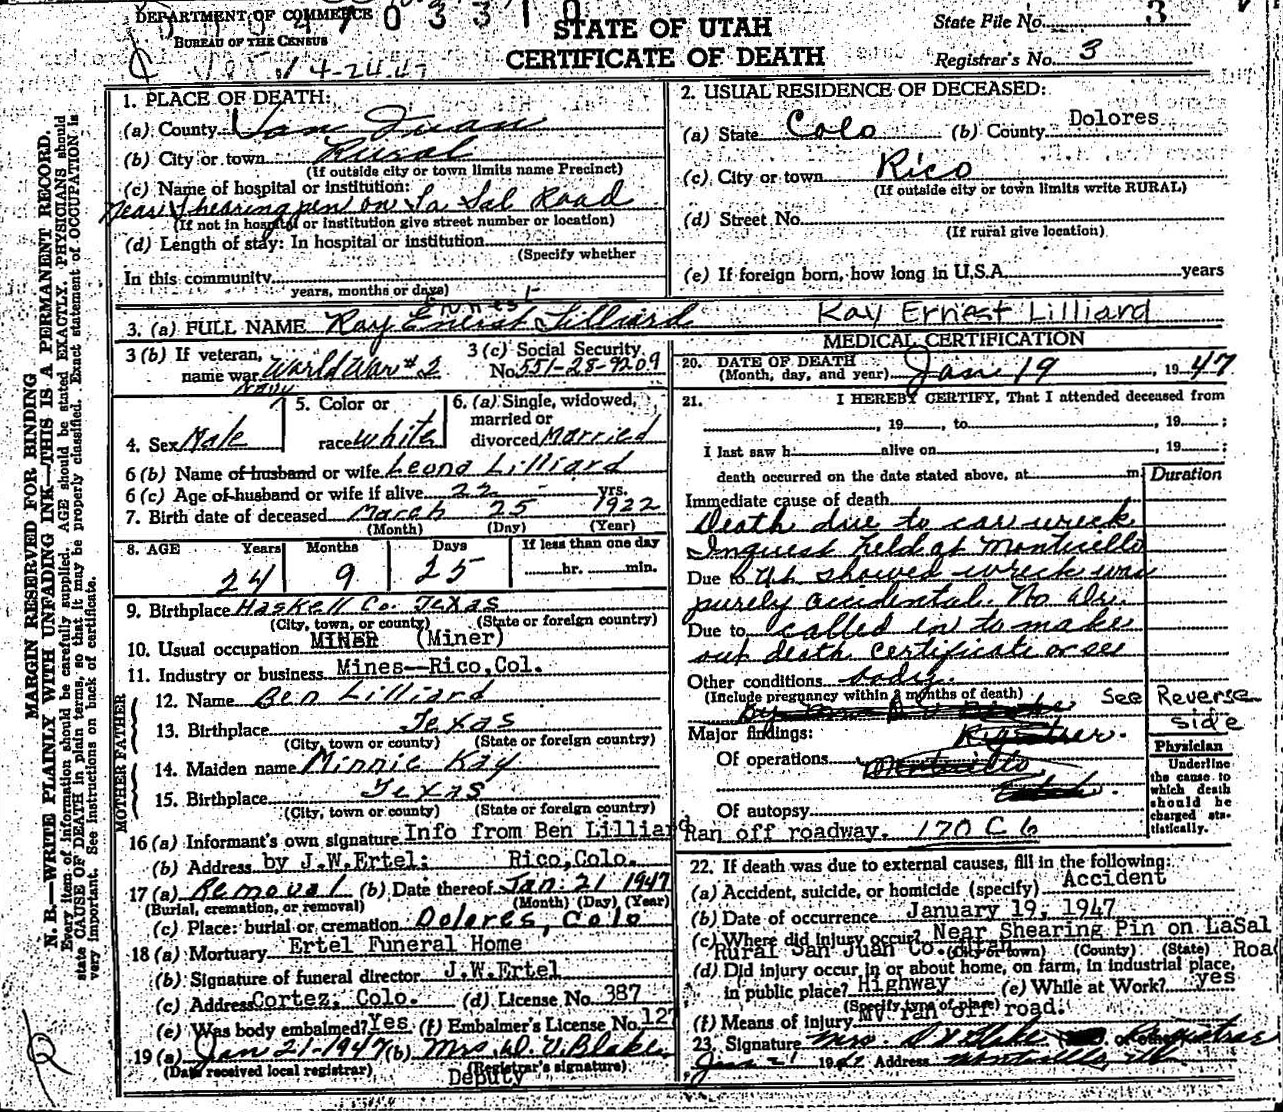 DEPARTMENT OF COMMERCE
BUREAU OF THE CENSUS
4-24-47
STATE OF UTAH
CERTIFICATE OF DEATH
State File No. 3
Registrar's No. 3
MARGIN RESERVED FOR BINDING
N. B.—WRITE PLAINLY WITH UNFADING INK—THIS IS A PERMANENT RECORD.
Every item of information should be carefully supplied. AGE should be stated EXACTLY. PHYSICIANS should
state CAUSE OF DEATH in plain terms, so that it may be properly classified. Exact statement of OCCUPATION is
very important. See instructions on back of certificate.
1. PLACE OF DEATH:
(a) County San Juan
(b) City or town Rural
(If outside city or town limits name Precinct)
(c) Name of hospital or institution:
Near Shearing pen on La Sal Road
(If not in hospital or institution give street number or location)
(d) Length of stay: In hospital or institution
(Specify whether
In this community
years, months or days)
2. USUAL RESIDENCE OF DECEASED:
(a) State Colo (b) County Dolores
(c) City or town Rico
(If outside city or town limits write RURAL)
(d) Street No.
(If rural give location)
(e) If foreign born, how long in U.S.A. years
Ernest
3. (a) FULL NAME Ray Enerst Lilliard Ray Ernest Lilliard
3 (b) If veteran, name war World War #2
Navy
3 (c) Social Security No. 551-28-9209
4. Sex Male
5. Color or race white
6. (a) Single, widowed, married or divorced Married
6 (b) Name of husband or wife Leona Lilliard
6 (c) Age of husband or wife if alive 22 yrs.
7. Birth date of deceased March 25 1922
(Month) (Day) (Year)
8. AGE Years Months Days If less than one day
24 9 25 hr. min.
9. Birthplace Haskell Co. Texas
(City, town, or county) (State or foreign country)
10. Usual occupation MINER (Miner)
11. Industry or business Mines—Rico,Col.
FATHER
12. Name Ben Lilliard
13. Birthplace Texas
(City, town or county) (State or foreign country)
MOTHER
14. Maiden name Minnie Kay
15. Birthplace Texas
(City, town or county) (State or foreign country)
16 (a) Informant's own signature Info from Ben Lilliard
(b) Address by J.W.Ertel; Rico,Colo.
17 (a) Removal (b) Date thereof Jan. 21 1947
(Burial, cremation, or removal) (Month) (Day) (Year)
(c) Place: burial or cremation Dolores, Colo
18 (a) Mortuary Ertel Funeral Home
(b) Signature of funeral director J.W.Ertel
(c) Address Cortez, Colo. (d) License No. 387
(e) Was body embalmed? Yes (f) Embalmer's License No. 127
19 (a) Jan 21-1947 (b) Mrs. D. V. Blake
(Date received local registrar) (Registrar's signature)
Deputy
MEDICAL CERTIFICATION
20. DATE OF DEATH
(Month, day, and year) Jan 19, 1947
21. I HEREBY CERTIFY, That I attended deceased from
, 19 , to , 19 ;
I last saw h alive on , 19 ;
death occurred on the date stated above, at m. Duration
Immediate cause of death
Death due to car wreck
Inquest held at Monticello
Due to Ut. showed wreck was
purely accidental. No Dr.
Due to called in to make
out death certificate or see
Other conditions body.
(Include pregnancy within 3 months of death) See Reverse
side
Major findings: Registrar.
Of operations Monticello
Utah.
Of autopsy
Physician
Underline
the cause to
which death
should be
charged sta-
tistically.
Ran off roadway. 170 C 6
22. If death was due to external causes, fill in the following:
(a) Accident, suicide, or homicide (specify) Accident
(b) Date of occurrence January 19, 1947
(c) Where did injury occur? Near Shearing Pin on LaSal
Rural San Juan Co. Utah (City or town) (County) (State) Road
(d) Did injury occur in or about home, on farm, in industrial place,
in public place? Highway (e) While at Work? yes
(Specify type of place)
(f) Means of injury MV ran off road.
23. Signature Mrs D V Blake or other Registrar
Jan 21 1947 Address Monticello, Ut